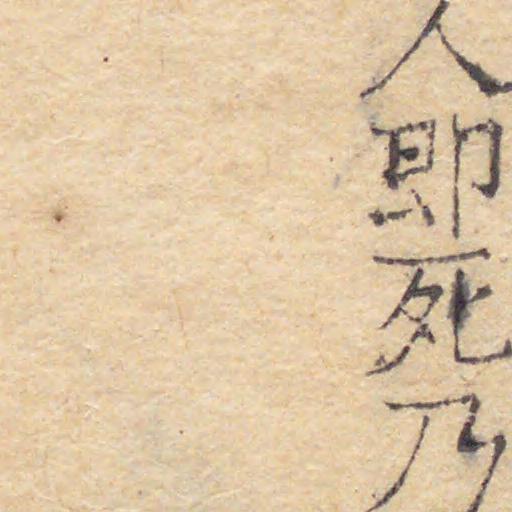 人即死乃